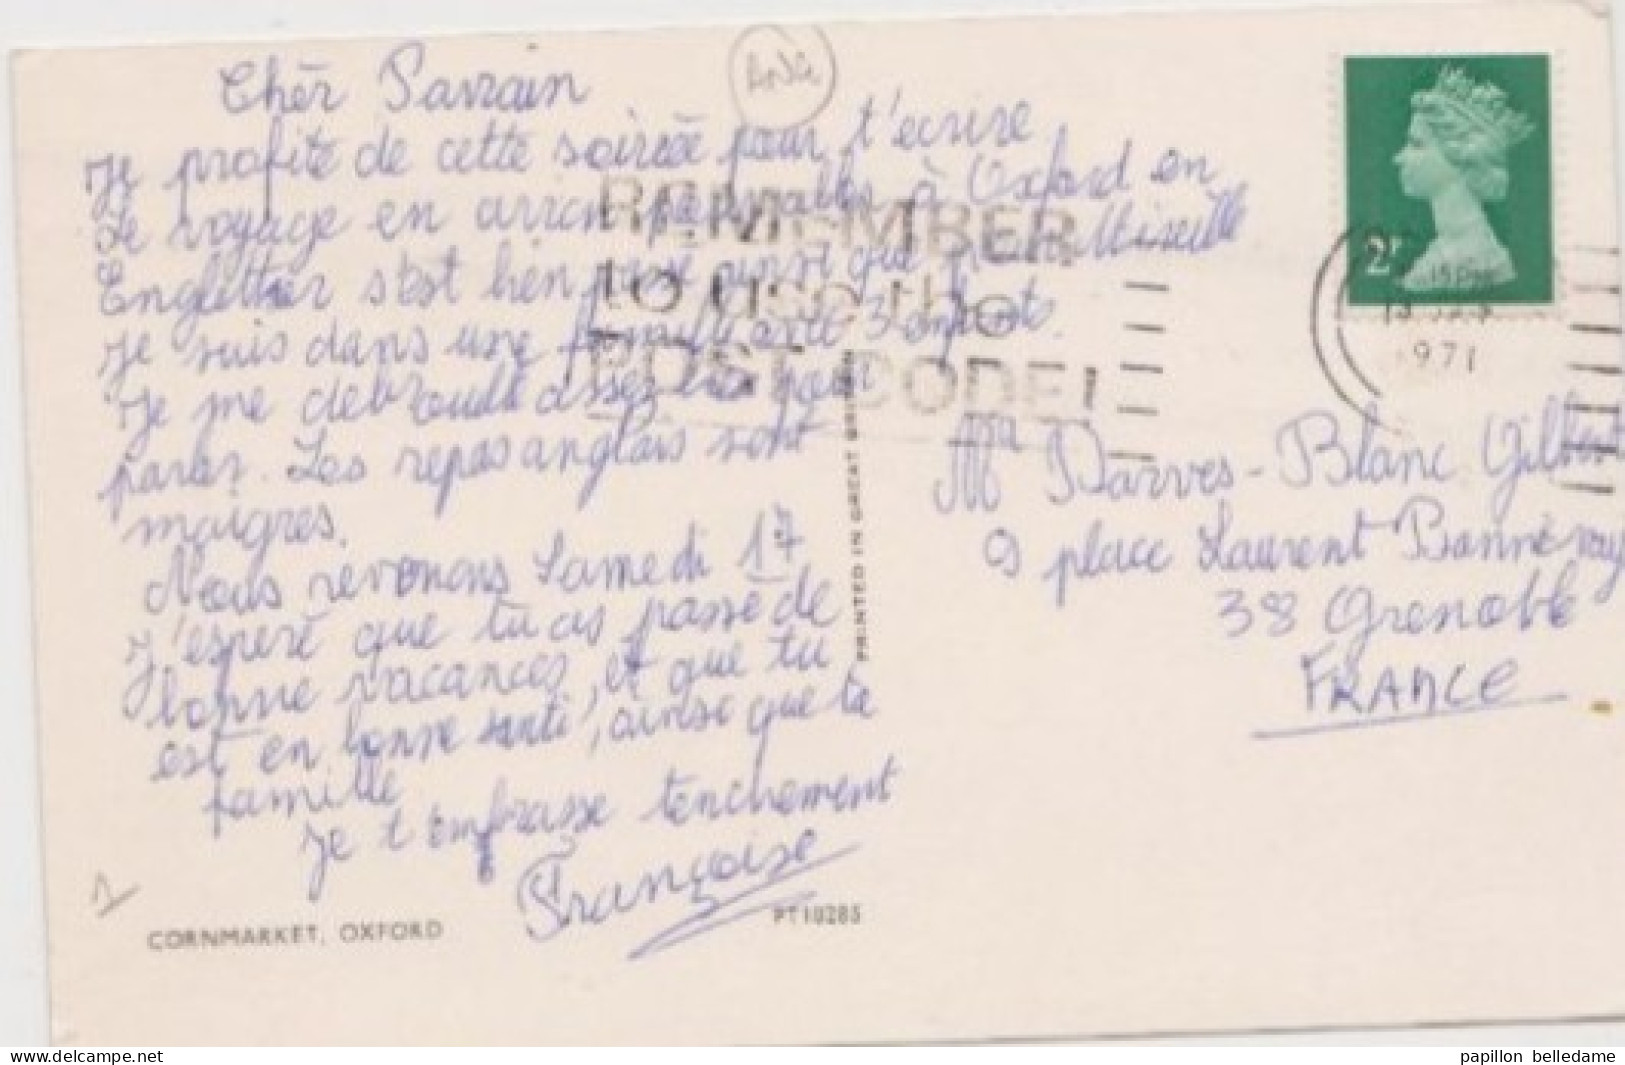 Chèr Parrain
ANG
Je profite de cette soirée pour t'ecrire
Le voyage en avion à Oxford en
s'est bien passé ainsi que pour Mireille
Je suis dans une famille 3 enfants.
Je me debrouille assez pour
parler. Les repas anglais sont
maigres.
Nous revenons Samedi 17
J'espere que tu as passé de
bonne vacances, et que tu
est en bonne santé, ainsi que ta
famille
Je t'embrasse tenchement
Françoise
1
CORNMARKET, OXFORD
PT10285
PRINTED IN GREAT BRITAIN
REMEMBER
to use the
POST CODE
2P
971
Mr Darves-Blanc Gilbert
9 place Laurent Bonnevay
38 Grenoble
FRANCE
papillon belledame